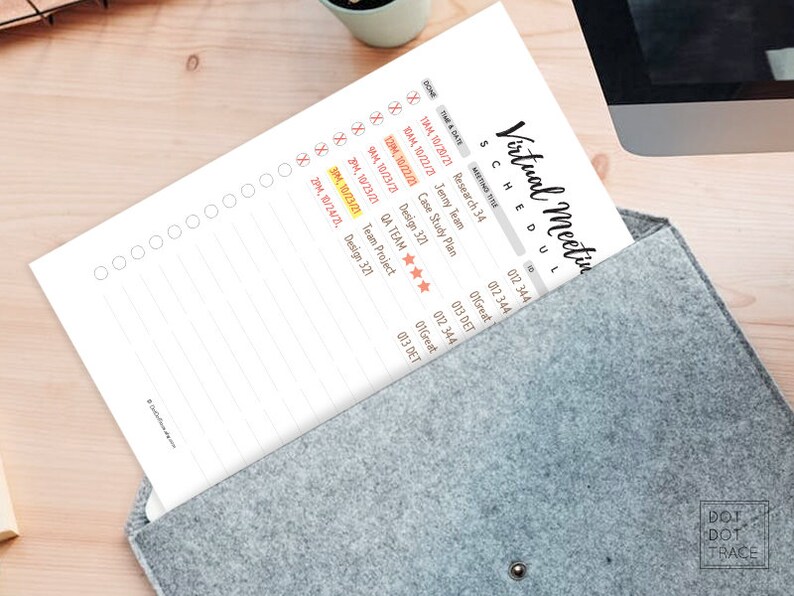 Virtual Meetin
SCHEDUL
DONE TIME & DATE MEETING TITLE ID
X 11AM, 10/20/21 Research 34 012 344
X 10AM, 10/22/21 Jenny Team 012 344
X 12PM, 10/22/21 Case Study Plan 01Great
X 9AM, 10/23/21 Design 321 013 DET
X 2PM, 10/23/21 QA TEAM ★★★ 012 344
X 3PM, 10/23/21 Team Project 01Great
X 2PM, 10/24/21, Design 321 013 DET
© DotDotTrace.etsy.com
DOT
DOT
TRACE